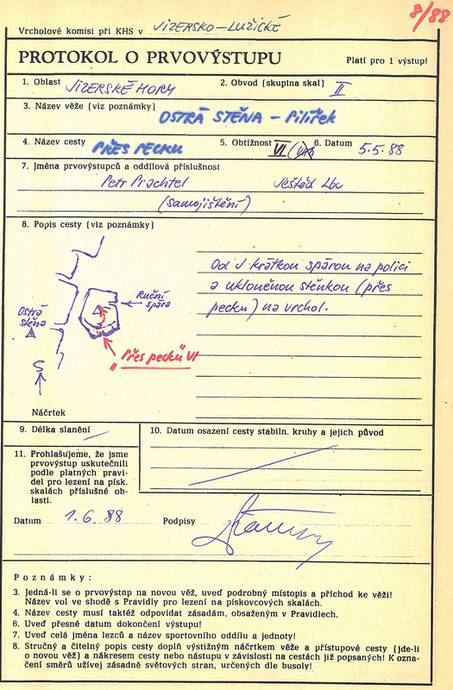 8/88
Vrcholové komisi při KHS v JIZERSKO – LUŽICKÉ
PROTOKOL O PRVOVÝSTUPU Platí pro 1 výstup!
1. Oblast JIZERSKÉ HORY 2. Obvod (skupina skal) II
3. Název věže (viz poznámky) OSTRÁ STĚNA – Pilířek
4. Název cesty PŘES PECKU 5. Obtížnost VI 6. Datum 5.5.88
7. Jména prvovýstupců a oddílová příslušnost
Petr Prachtel Ještěd Lbc
(samojištění)
8. Popis cesty (viz poznámky)
Od J krátkou spárou na polici
a ukloněnou stěnkou (přes
pecku) na vrchol.
Ruční
spára
Ostrá
stěna
"Přes pecku VI
S
Náčrtek
9. Délka slanění
10. Datum osazení cesty stabiln. kruhy a jejich původ
11. Prohlašujeme, že jsme
prvovýstup uskutečnili
podle platných pravi-
del pro lezení na písk.
skalách příslušné ob-
lasti.
Datum 1.6.88 Podpisy
Poznámky:
3. Jedná-li se o prvovýstup na novou věž, uveď podrobný místopis a příchod ke věži!
Název vol ve shodě s Pravidly pro lezení na pískovcových skalách.
4. Název cesty musí taktéž odpovídat zásadám, obsaženým v Pravidlech.
6. Uveď přesné datum dokončení výstupu!
7. Uveď celá jména lezců a název sportovního oddílu a jednoty!
8. Stručný a čitelný popis cesty doplň výstižným náčrtkem věže a přístupové cesty (jde-li
o novou věž) a nákresem cesty nebo nástupu v závislosti na cestách již popsaných! K ozna-
čení směrů užívej zásadně světových stran, určených dle busoly!